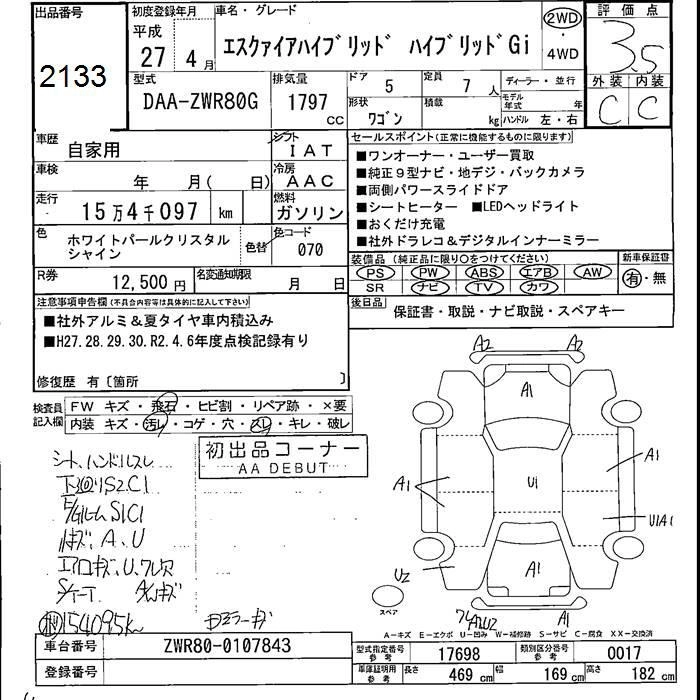 出品番号
2133
初度登録年月
平成
27年 4月
車名・グレード
エスクァイアハイブリッド ハイブリッドGi
2WD
・
4WD
評価点
3.5
外装 内装
C C
型式
DAA-ZWR80G
排気量
1797
CC
ドア 5
定員 7人
ディーラー・並行
形状
ワゴン
積載 kg
モデル年式 年
ハンドル 左・右
車歴
自家用
シフト
IAT
車検
年 月( 日)
冷房
AAC
走行
15万4千097 km
燃料
ガソリン
色
ホワイトパールクリスタル
シャイン
色替
色コード
070
R券
12,500円
名変通知期限
月 日
セールスポイント(正常に機能するものに限ります)
■ワンオーナー・ユーザー買取
■純正9型ナビ・地デジ・バックカメラ
■両側パワースライドドア
■シートヒーター ■LEDヘッドライト
■おくだけ充電
■社外ドラレコ&デジタルインナーミラー
装備品(純正品に限り○をつけてください)
新車保証書
PS PW ABS エアB AW
SR ナビ TV カワ
有・無
後日品
保証書・取説・ナビ取説・スペアキー
注意事項申告欄(不具合内容等は具体的に記入して下さい)
■社外アルミ&夏タイヤ車内積込み
■H27.28.29.30.R2.4.6年度点検記録有り
修復歴 有〔箇所 〕
検査員記入欄
FW キズ・飛石・ヒビ割・リペア跡・×要
内装 キズ・汚レ・コゲ・穴・スレ・キレ・破レ
初出品コーナー
AA DEBUT
シート、ハンドルスレ
下廻りS2C1
E/GルームS1C1
A、U
154095km
A2 A2
A1
A1
A1
U1
U1A1
A1
U2
A1
スペア
A-キズ E-エクボ U-凹み W-補修跡 S-サビ C-腐食 XX-交換済
車台番号
ZWR80-0107843
登録番号
型式指定番号 参考
17698
類別区分番号 参考
0017
車庫証明用 参考
長さ 469 cm
幅 169 cm
高さ 182 cm